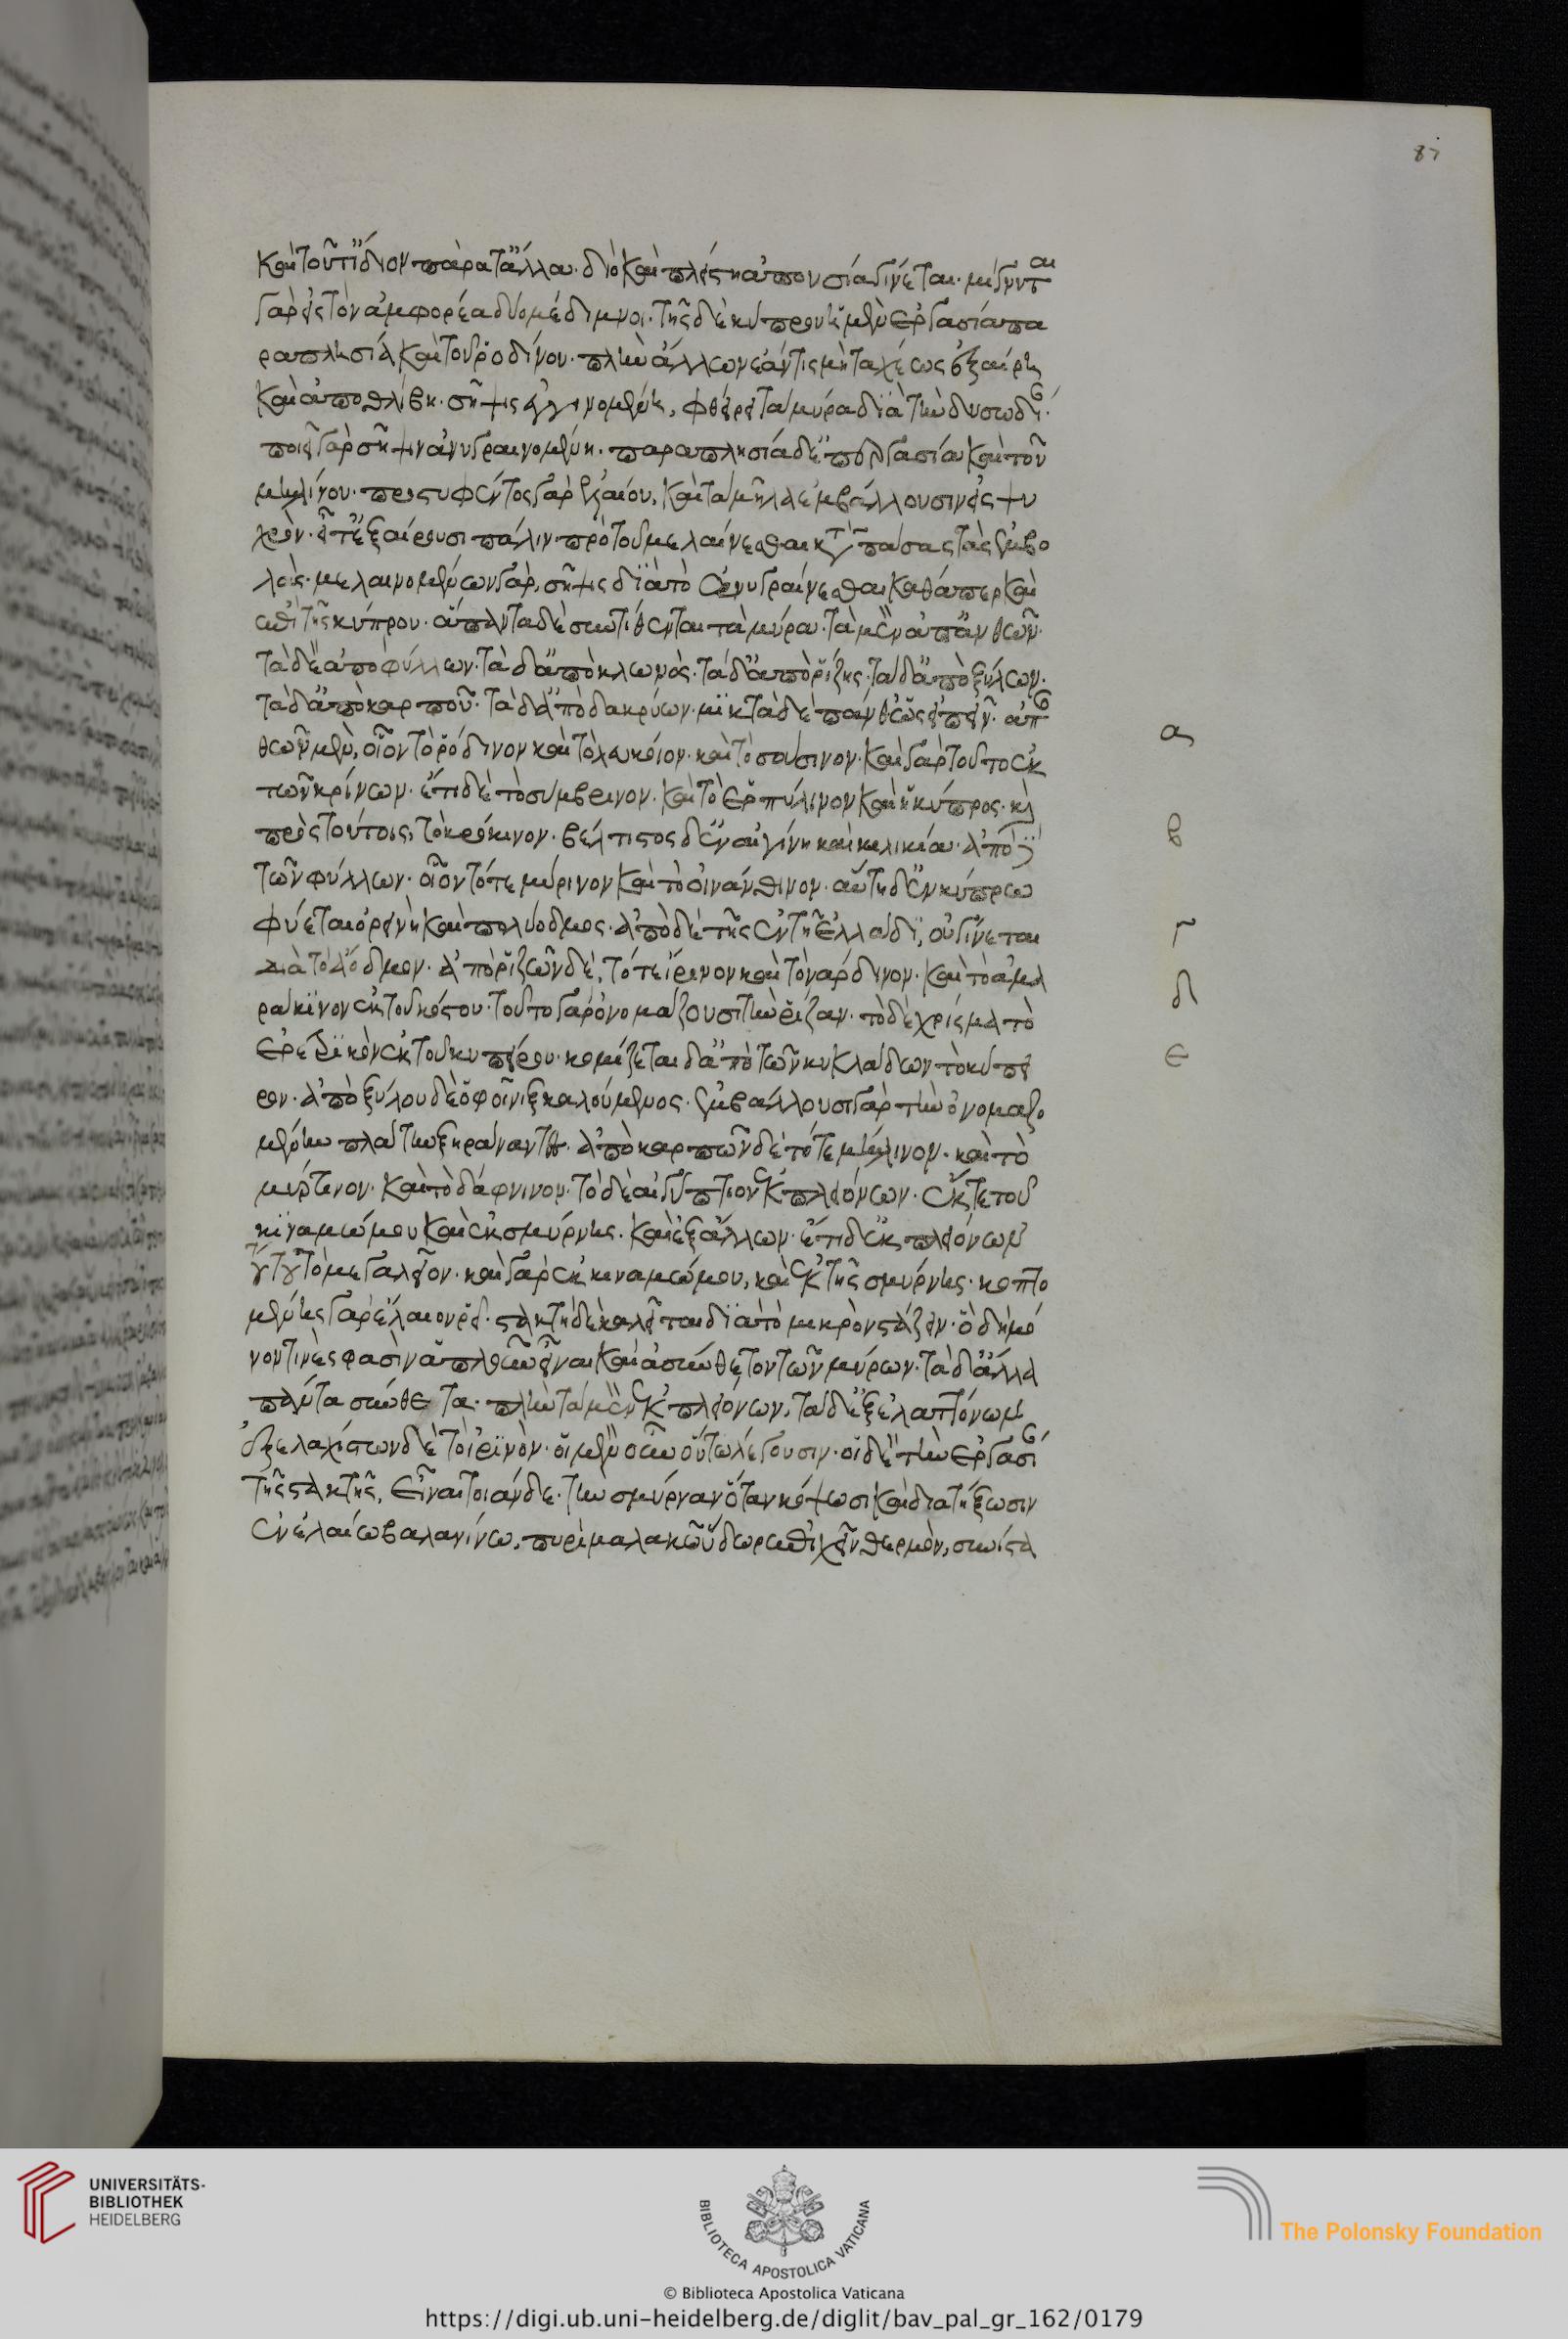 87
καὶ τοῦτ' ἴδιον παρὰ τἄλλα· διὸ καὶ πλείστη ἀπουσία γίνεται· μίγνυνται
γὰρ εἰς τὸν ἀμφορέα δύο μέδιμνοι· τῆς δὲ κύπρου ἡ μὲν ἐργασία πα
ραπλησία καὶ τοῦ ῥοδίνου· πλὴν ἄλλων ἐάν τις μὴ ταχέως ἐξαίρῃ
καὶ ἀποθλίβῃ· σῆψις
φθείρει τὰ μύρα διὰ τὴν δυσωδίαν·
ποιεῖ γὰρ σῆψιν ἀνυγραινομένη· παραπλησία δὲ
ἐργασία καὶ τοῦ
μηλίνου· προστυφέντος γὰρ ἐλαίου, καὶ τὰ μῆλα ἐμβάλλουσιν εἰς ψυ
χρόν· εἶτ' ἐξαίρουσι πάλιν πρὸ τοῦ μελαίνεσθαι κατὰ πάσας τὰς ἐμβο
λάς· μελαινομένων γὰρ, σῆψις διὰ τὸ ἀνυγραίνεσθαι καθάπερ καὶ
ἐπὶ τῆς κύπρου· ἅπαντα δὲ συντίθενται τὰ μύρα· τὰ μὲν ἀπ' ἀνθῶν·
τὰ δὲ ἀπὸ φύλλων· τὰ δ' ἀπὸ κλωνὸς· τὰ δ' ἀπὸ ῥίζης· τὰ δ' ἀπὸ ξύλων·
τὰ δ' ἀπὸ καρποῦ· τὰ δ' ἀπὸ δακρύων· μικτὰ δὲ πάνθ' ὡς εἰπεῖν· ἀπ' ἀν
α
θῶν μὲν, οἷον τὸ ῥόδινον καὶ τὸ λευκόϊον· καὶ τὸ σούσινον· καὶ γὰρ τοῦτο ἐκ
τῶν κρίνων· ἔτι δὲ τὸ συμβρινον· καὶ τὸ ἑρπύλινον καὶ ἡ κύπρος· καὶ
πρὸς τούτοις, τὸ κρόκινον· βέλτιστος δ' ἐν αἰγίνῃ καὶ κιλικίᾳ· ἀπὸ δὲ
β
τῶν φύλλων· οἷον τό τε μύρινον καὶ τὸ οἰνάνθινον· αὕτη δ' ἐν κύπρω
φύεται ὀρεινὴ καὶ πολύοδμος· ἀπὸ δὲ τῆς ἐν τῇ ἑλλάδι, οὐ γίνεται
γ
διὰ τὸ ἄοδμον· ἀπὸ ῥιζῶν δὲ, τό τε ἴρινον καὶ τὸ νάρδινον· καὶ τὸ ἀμα
ράκινον ἐκ τοῦ κόστου· τοῦτο γὰρ ὀνομάζουσι τὴν ῥίζαν· τὸ δὲ χρίσμα τὸ
δ
ἐρετρικὸν ἐκ τοῦ κυπείρου· κομίζεται δ' ἀπὸ τῶν κυκλάδων τὸ κύπει
ε
ρον· ἀπὸ ξύλου δὲ ὁ φοῖνιξ καλούμενος· ἐμβάλλουσι γὰρ τὴν ὀνομαζο
μένην σπάθην ξηράναντες· ἀπὸ καρπῶν δὲ τό τε μήλινον· καὶ τὸ
μύρτινον· καὶ τὸ δάφνινον· τὸ δὲ αἰγύπτιον ἐκ πλειόνων· ἔκ τε τοῦ
κιναμώμου καὶ ἐκ σμύρνης· καὶ ἐξ ἄλλων· ἔτι δ' ἐκ πλειόνων
τούτου τὸ μεγαλεῖον· καὶ γὰρ ἐκ κιναμώμου, καὶ ἐκ τῆς σμύρνης· κοπτο
μένης γὰρ ἔλαιον ῥεῖ· στακτὴ δὲ καλεῖται διὰ τὸ μικρὸν στάζειν· ὃ δὴ μό
νον τινὲς φασὶν ἁπλοῦν εἶναι καὶ ἀσύνθετον τῶν μύρων· τὰ δ' ἄλλα
πάντα σύνθετα· πλὴν τὰ μὲν ἐκ πλειόνων, τὰ δ' ἐξ ἐλαττόνων
ἐξ ἐλαχίστων δὲ τὸ ἴρινον· οἱ μὲν οὖν οὕτω λέγουσιν· οἱ δὲ τὴν ἐργασίαν
τῆς στακτῆς, εἶναι τοιάνδε· τὴν σμύρναν ὅταν κόψωσι καὶ διατήξωσιν
ἐν ἐλαίω βαλανίνω, πυρὶ μαλακῶ ὕδωρ ἐπιχεῖν θερμὸν, συνίζα
UNIVERSITÄTS-
BIBLIOTHEK
HEIDELBERG
BIBLIOTECA APOSTOLICA VATICANA
The Polonsky Foundation
© Biblioteca Apostolica Vaticana
https://digi.ub.uni-heidelberg.de/diglit/bav_pal_gr_162/0179